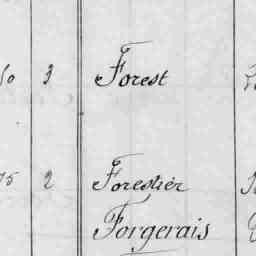 3 Forest
2 Forestier
Forgerais